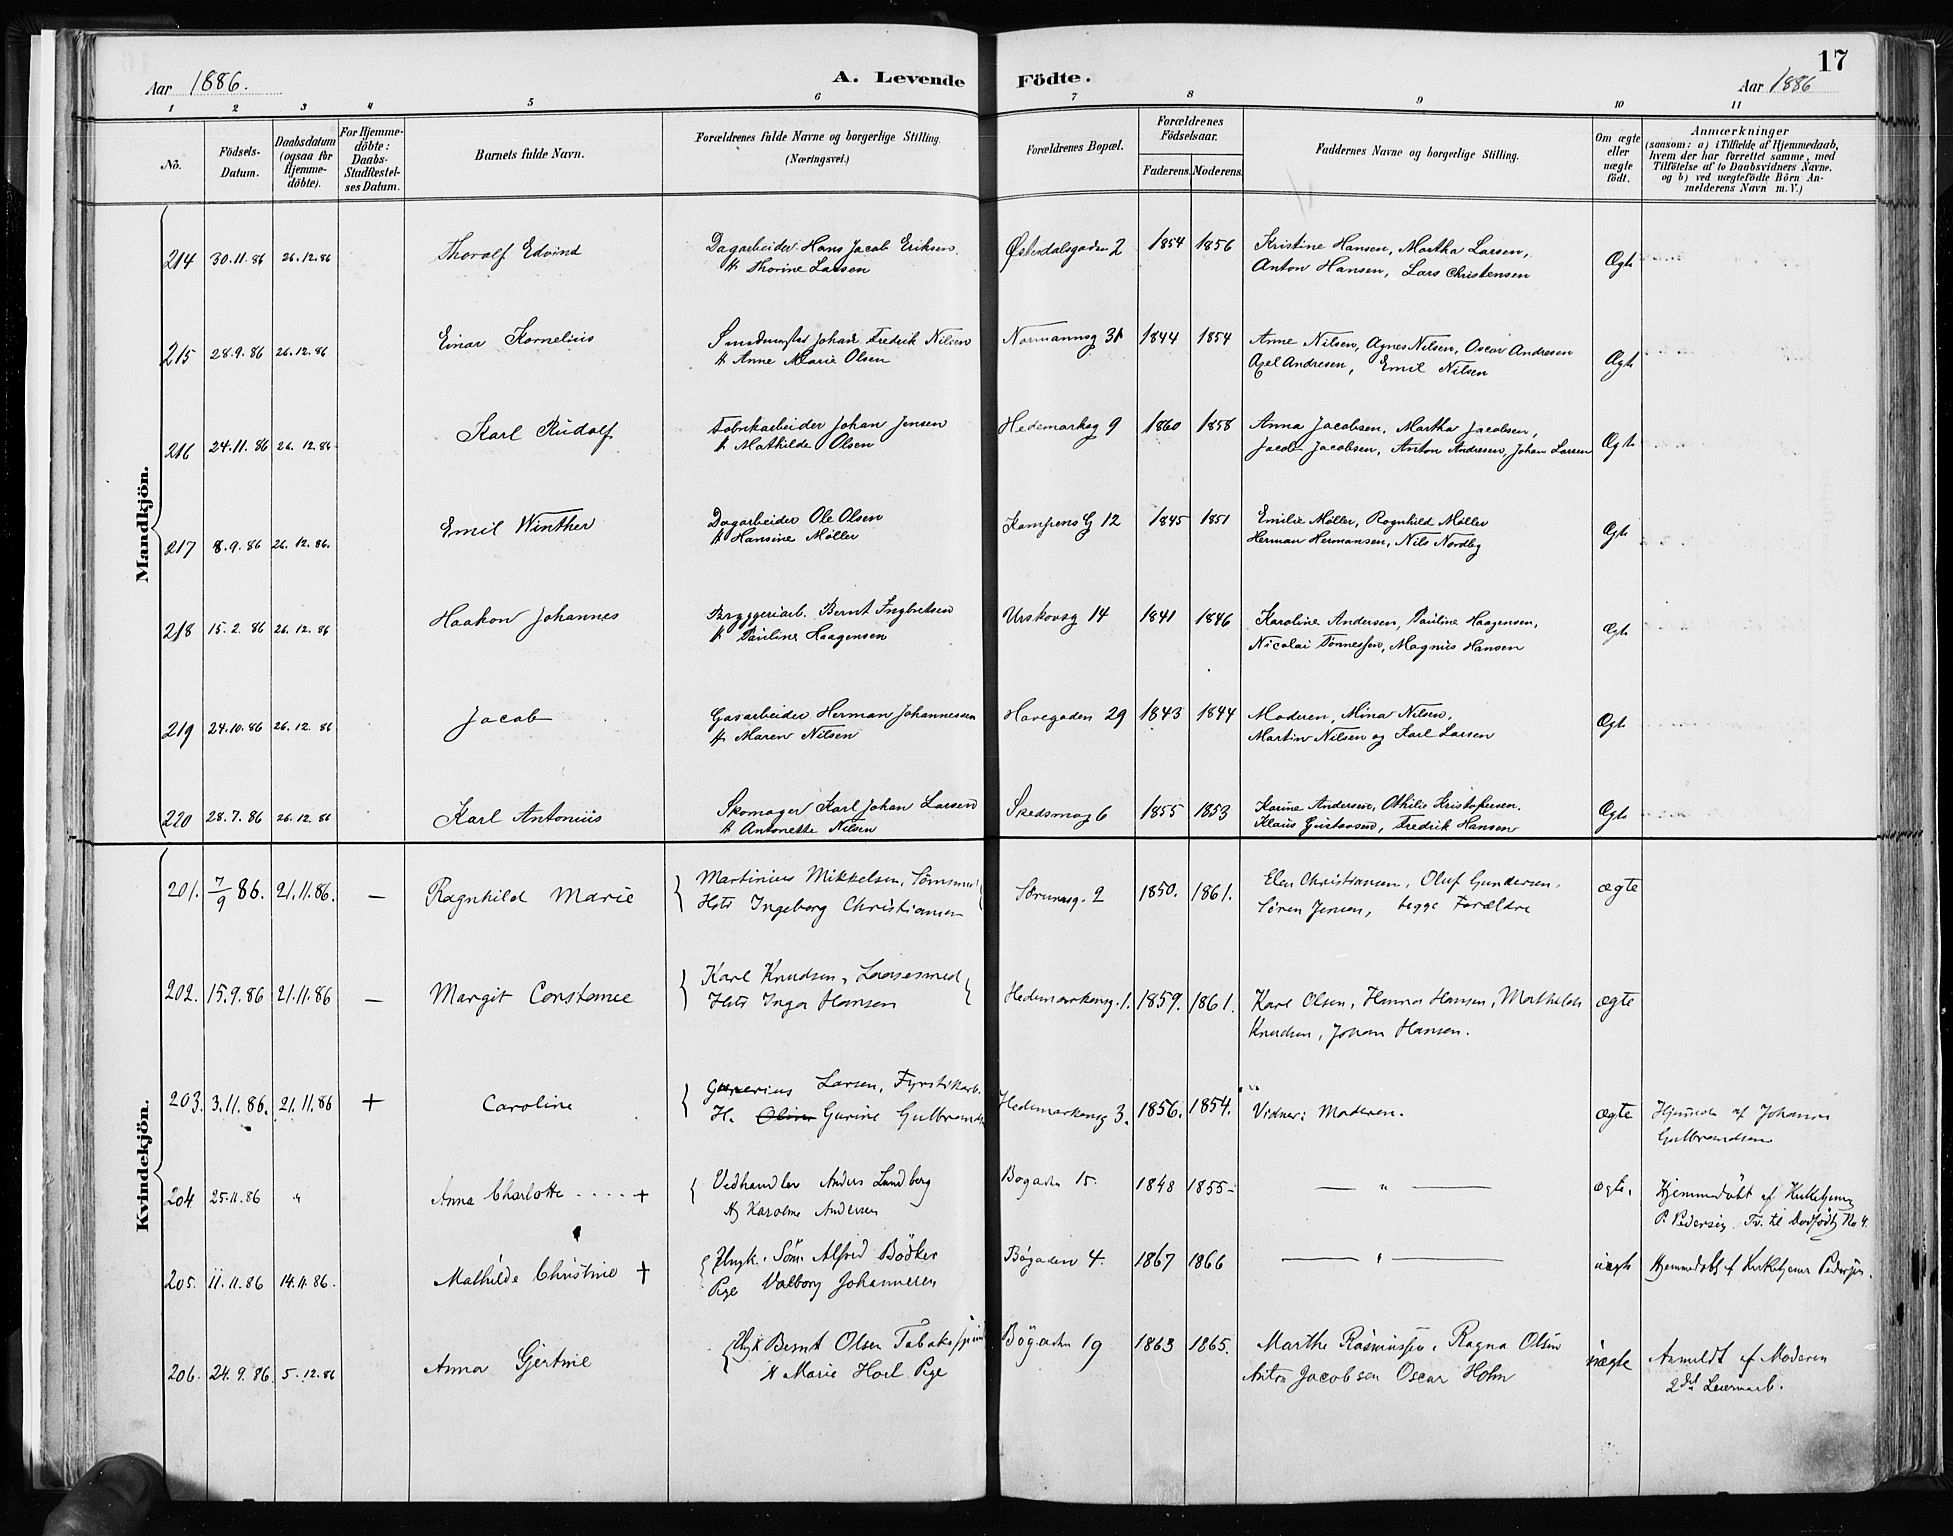 17
Aar 1886.
A. Levende Födte.
Aar 1886
1 2 3 4 5 6 7 8 9 10 11
No.
Födsels-
Datum.
Daabsdatum
(ogsaa for
Hjemme-
döbte).
For Hjemme-
döbte:
Daabs-
Stadfæstel-
ses Datum.
Barnets fulde Navn.
Forældrenes fulde Navne og borgerlige Stilling.
(Næringsvei.)
Forældrenes Bopæl.
Forældrenes
Födselsaar.
Faderens. Moderens.
Faddernes Navne og borgerlige Stilling.
Om ægte
eller
uægte
födt.
Anmærkninger
(saasom: a) i Tilfælde af Hjemmedaab,
hvem der har forrettet samme, med
Tilföielse af to Daabsvidners Navne.
og b) ved uægtefödte Börn An-
melderens Navn m. V.)
Mandkjön.
214 30.11.86 26.12.86 Thoralf Edvind Dagarbeider Hans Jacob Eriksen Østerdalsgaden 2 1854 1856 Kristine Hansen, Martha Larsen,
H Thorine Larsen Anton Hansen, Lars Christensen Ægte
215 28.9.86 26.12.86 Einar Kornelius Smedmester Johan Fredrik Nilsen Normannsg 31 1844 1854 Anne Nilsen, Agnes Nilsen, Oscar Andresen
H Anne Marie Olsen Axel Andresen, Emil Nilsen Ægte
216 24.11.86 26.12.86 Karl Rudolf Fabrikarbeider Johan Jensen Hedemarksg 9 1860 1858 Anna Jacobsen, Martha Jacobsen,
H Mathilde Olsen Jacob Jacobsen, Anton Andresen, Johan Larsen Ægte
217 8.9.86 26.12.86. Emil Winther Dagarbeider Ole Olsen Kampens G 12 1845 1851 Emilie Møller, Ragnhild Møller
H Hansine Møller Herman Hermansen, Nils Nordby Ægte
218 15.2.86 26.12.86 Haakon Johannes Bryggeriarb. Bernt Ingbretsen Urskovsg 14 1841 1846 Karoline Andersen, Pauline Haagensen,
H Pauline Haagensen Nicolai Tønnessen, Magnus Hansen Ægte
219 24.10.86 26.12.86 Jacob Gasarbeider Herman Johannessen Havegaden 29 1843 1844 Moderen, Mina Nilsen,
H Maren Nilsen Martin Nilsen og Karl Larsen Ægte
220 28.7.86 26.12.86 Karl Antonius Skomager Karl Johan Larsen Skedsmog 6 1855 1853 Karine Andersen, Othilie Kristofersen,
H Antonette Nilsen Klaus Gustavsen, Fredrik Hansen Ægte
Kvindekjön.
201. 7/9 86. 21.11.86. — Ragnhild Marie Martinius Mikkelsen, Sørumsg. 2 1850. 1861. Elen Christiansen, Oluf Gundersen,
Hst Ingeborg Christiansen Søren Jensen, begge Forældre ægte
202. 15.9.86 21.11.86 — Margit Constance Karl Knudsen, Laasesmed Hedemarkensg. 1. 1859. 1861. Karl Olsen, Hanna Hansen, Mathilde
Hst Inga Hansen Knudsen, Johan Hansen. ægte
203. 3.11.86. 21.11.86 + Caroline Larsen, Fyrstikarb. Hedemarkensg 3. 1856. 1854. Vidner: Moderen. ægte af Johanne
H. Gurine Gulbrands Gulbrandsen
204 25.11.86 " Anna Charlotte ..... + Vedhandler Anders Lundberg Bøgaden 15. 1848 1855 — " — ægte. Hjemmedøbt af Kirketjener
H Karoline Andersen P. Pedersen. Tv. til Dødfødt No 4.
205. 11.11.86 14.11.86. Mathilde Christine + Ungk. Søm. Alfred Bödker Bøgaden 4. 1867 1866 — " — uægte Hjemmedøbt af Kirketjener Pedersen.
Pige Valborg Johannesen
206. 24.9.86 5.12.86 Anna Gjertine Ungk Bernt Olsen Bögaden 19 1863 1865. Marthe Rasmussen, Ragna Olsen
Marie Hoel Pige Anton Jacobsen Oscar Holm uægte Anmeldt af Moderen
2det Leiermaal.